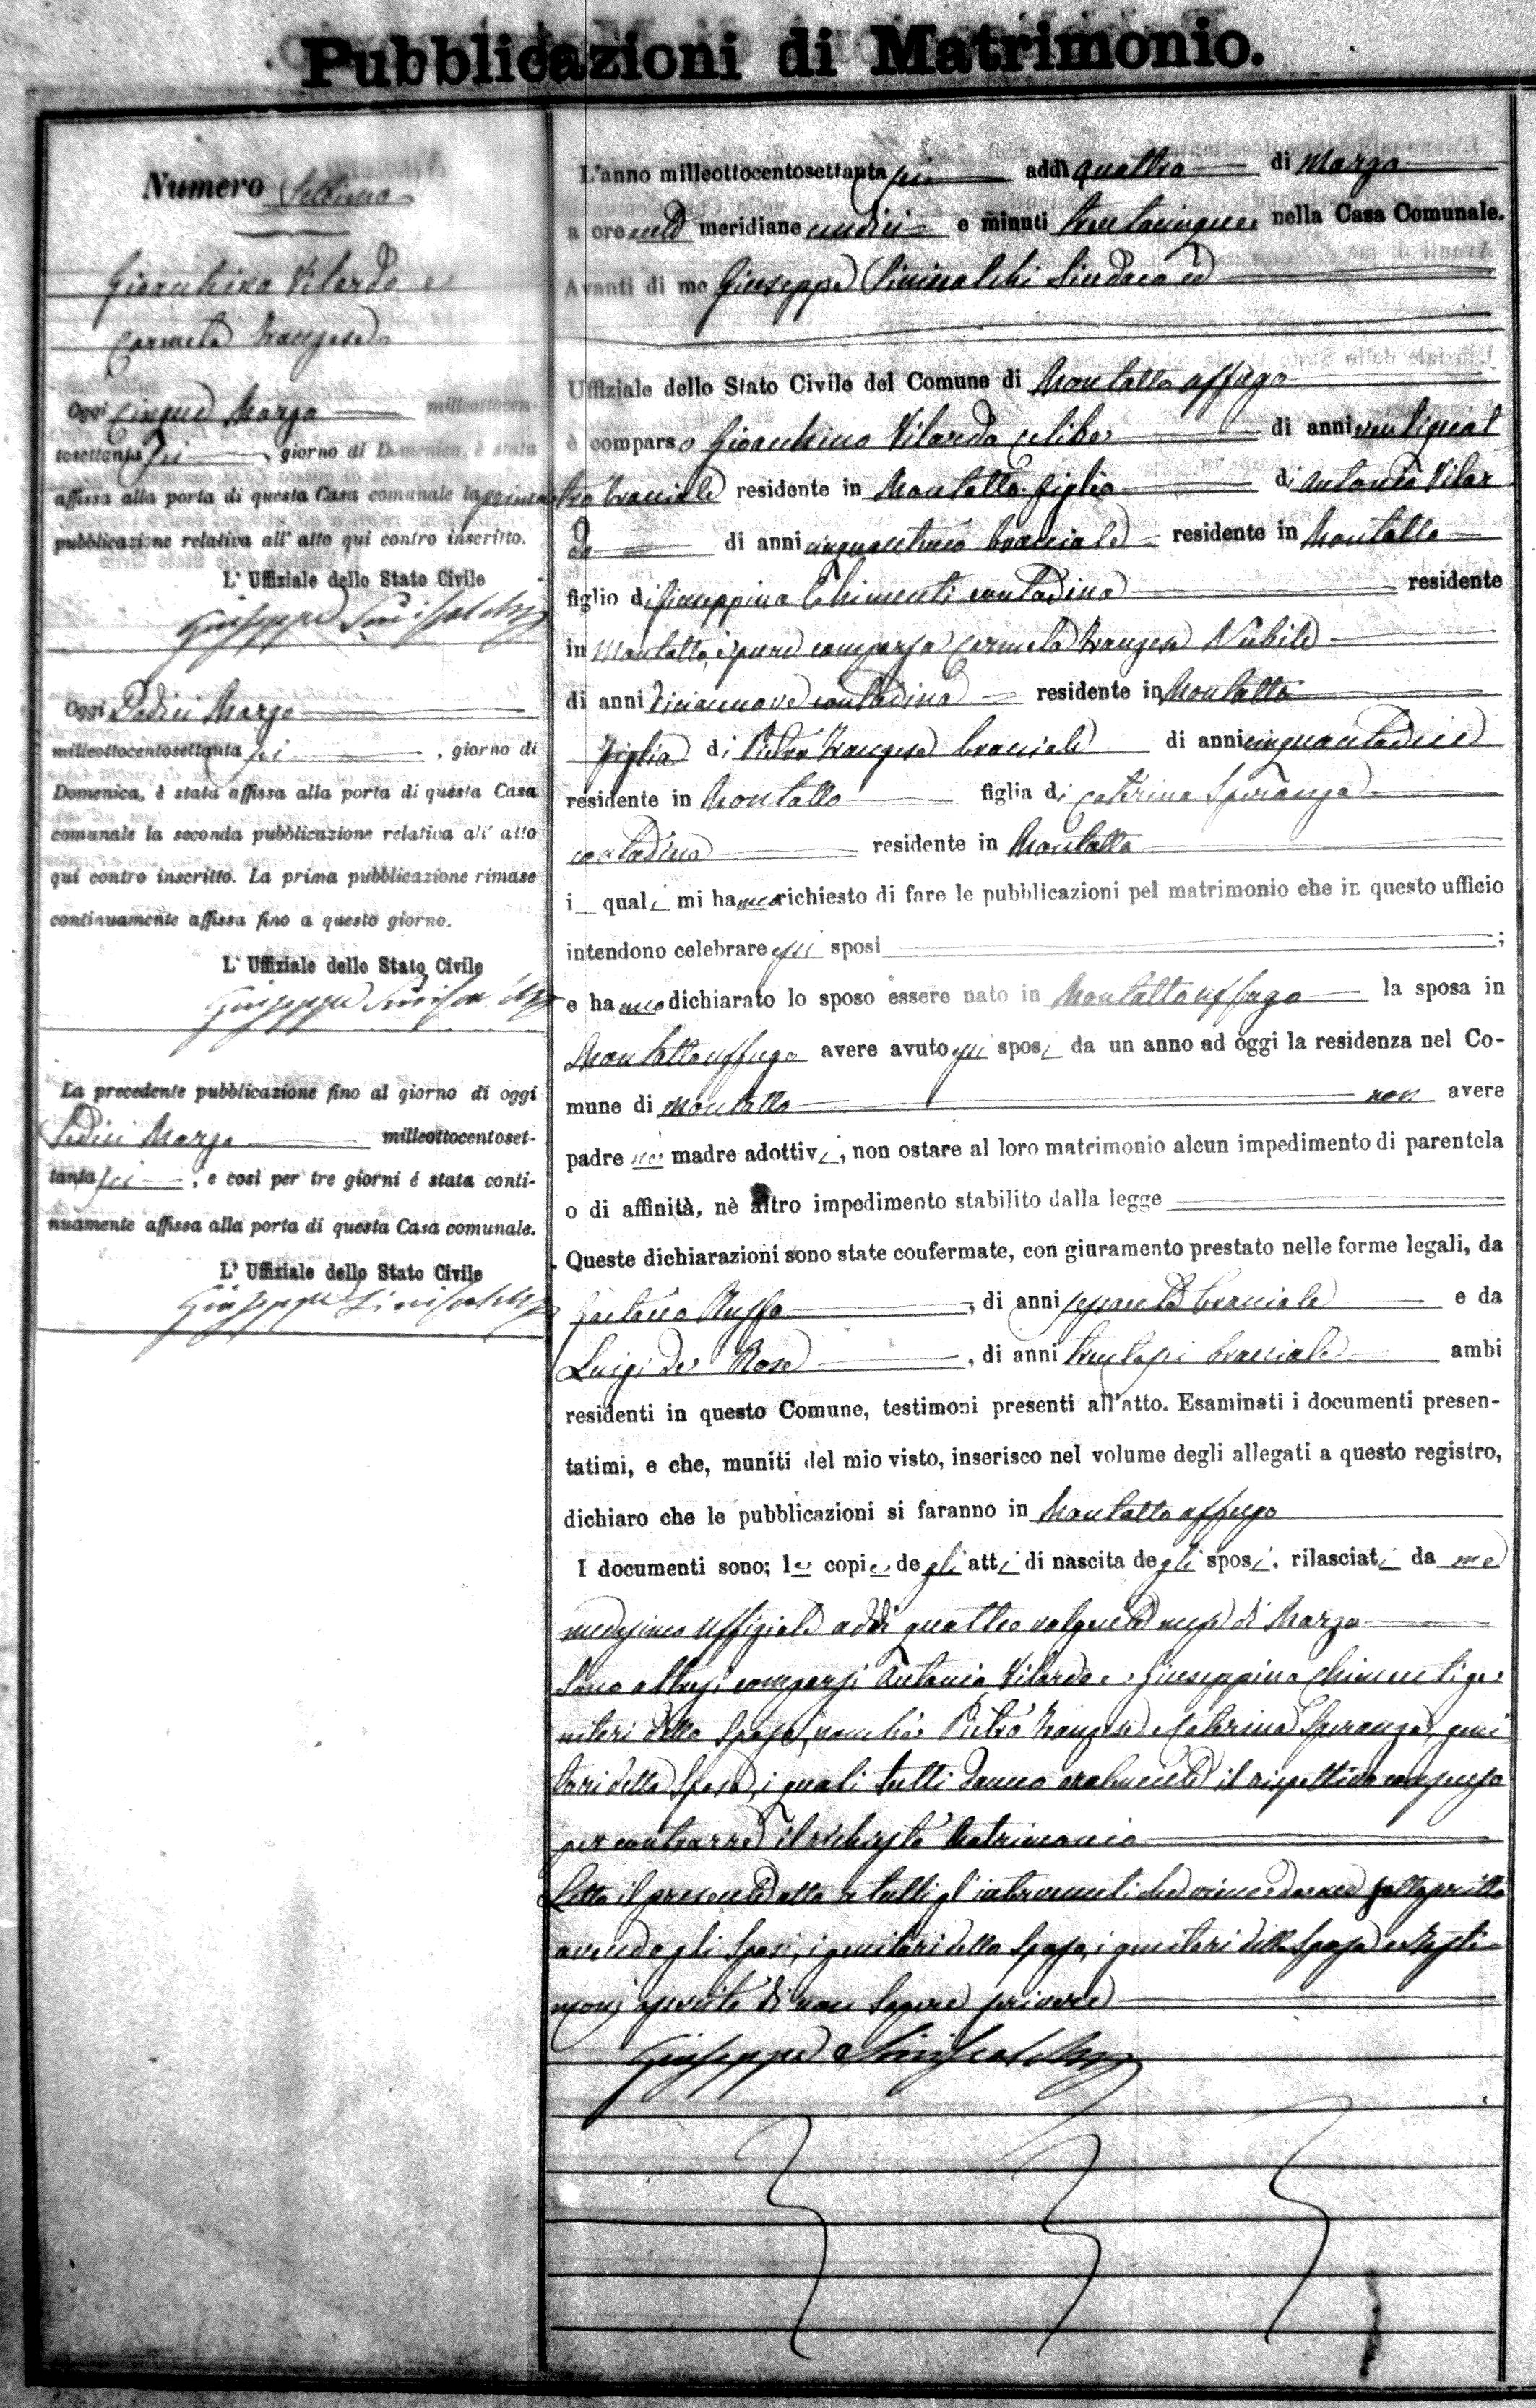 Pubblicazioni di Matrimonio.
Numero Settimo
Gioachino Vilardo e
Carmela Franzese
Oggi cinque Marzo milleottocen-
tosettanta sei, giorno di Domenica, è stata
affissa alla porta di questa Casa comunale la prima
pubblicazione relativa all' atto qui contro inscritto.
L' Uffiziale dello Stato Civile
Giuseppe Siniscalchi
Oggi Dodici Marzo
milleottocentosettanta sei, giorno di
Domenica, è stata affissa alla porta di questa Casa
comunale la seconda pubblicazione relativa all' atto
qui contro inscritto. La prima pubblicazione rimase
continuamente affissa fino a questo giorno.
L' Uffiziale dello Stato Civile
Giuseppe Siniscalchi
La precedente pubblicazione fino al giorno di oggi
Sedici Marzo milleottocentoset-
tanta sei, e così per tre giorni é stata conti-
nuamente affissa alla porta di questa Casa comunale.
L' Uffiziale dello Stato Civile
Giuseppe Siniscalchi
L'anno milleottocentosettanta sei addì quattro di Marzo
a ore anti meridiane undici e minuti trentacinque nella Casa Comunale.
Avanti di me Giuseppe Siniscalchi Sindaco ed
Uffiziale dello Stato Civile del Comune di Montalto Uffugo
è comparso Gioacchino Vilardo celibe di anni ventiquat
tro bracciale residente in Montalto figlio di Antonio Vilar
do di anni bracciale residente in Montalto
figlio di Giuseppina Chimenti contadina residente
in Montalto, è pure comparsa Carmela Franzese Nubile
di anni diciannove contadina residente in Montalto
figlia di Pietro Franzese bracciale di anni cinquantadue
residente in Montalto figlia di Caterina Speranza
contadina residente in Montalto
i quali mi hanno richiesto di fare le pubblicazioni pel matrimonio che in questo ufficio
intendono celebrare essi sposi ;
e hanno dichiarato lo sposo essere nato in Montalto Uffugo la sposa in
Montalto Uffugo avere avuto gli sposi da un anno ad oggi la residenza nel Co-
mune di Montalto non avere
padre nè madre adottivi, non ostare al loro matrimonio alcun impedimento di parentela
o di affinità, nè altro impedimento stabilito dalla legge
Queste dichiarazioni sono state confermate, con giuramento prestato nelle forme legali, da
Gaetano Ruffo, di anni sessanta bracciale e da
Luigi De Rose, di anni trentasei bracciale ambi
residenti in questo Comune, testimoni presenti all'atto. Esaminati i documenti presen-
tatimi, e che, muniti del mio visto, inserisco nel volume degli allegati a questo registro,
dichiaro che le pubblicazioni si faranno in Montalto Uffugo
I documenti sono; le copie degli atti di nascita degli sposi, rilasciati da me
medesimo Uffiziale addì quattro volgente mese di Marzo
Sono altresì comparsi Antonio Vilardo e Giuseppina Chimenti ge
nitori dello Sposo, nonchè Pietro Franzese e Caterina Speranza, geni
tori della Sposa, i quali tutti danno oralmente il rispettivo consenso
per contrarre il richiesto Matrimonio
Letto il presente atto a tutti gl' intervenuti che sottoscritto
avendo gli Sposi, i genitori dello Sposo, i genitori della Sposa e testi
monj asserito di non sapere scrivere
Giuseppe Siniscalchi